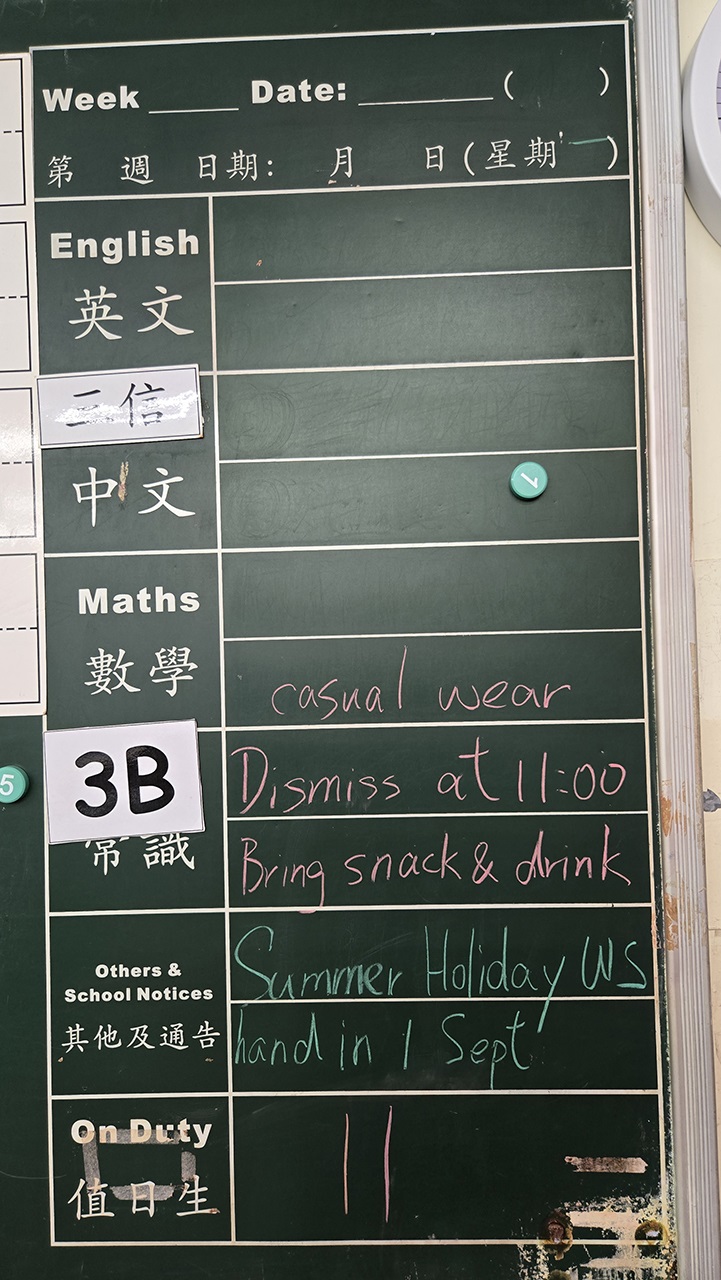 Week ____ Date: ______ ( )
第 週 日期: 月 日(星期一)
English
英文
三信
中文
1
Maths
數學
casual wear
5
3B
Dismiss at 11:00
常識
Bring snack & drink
Others &
School Notices
其他及通告
Summer Holiday WS
hand in 1 Sept
On Duty
值日生
11